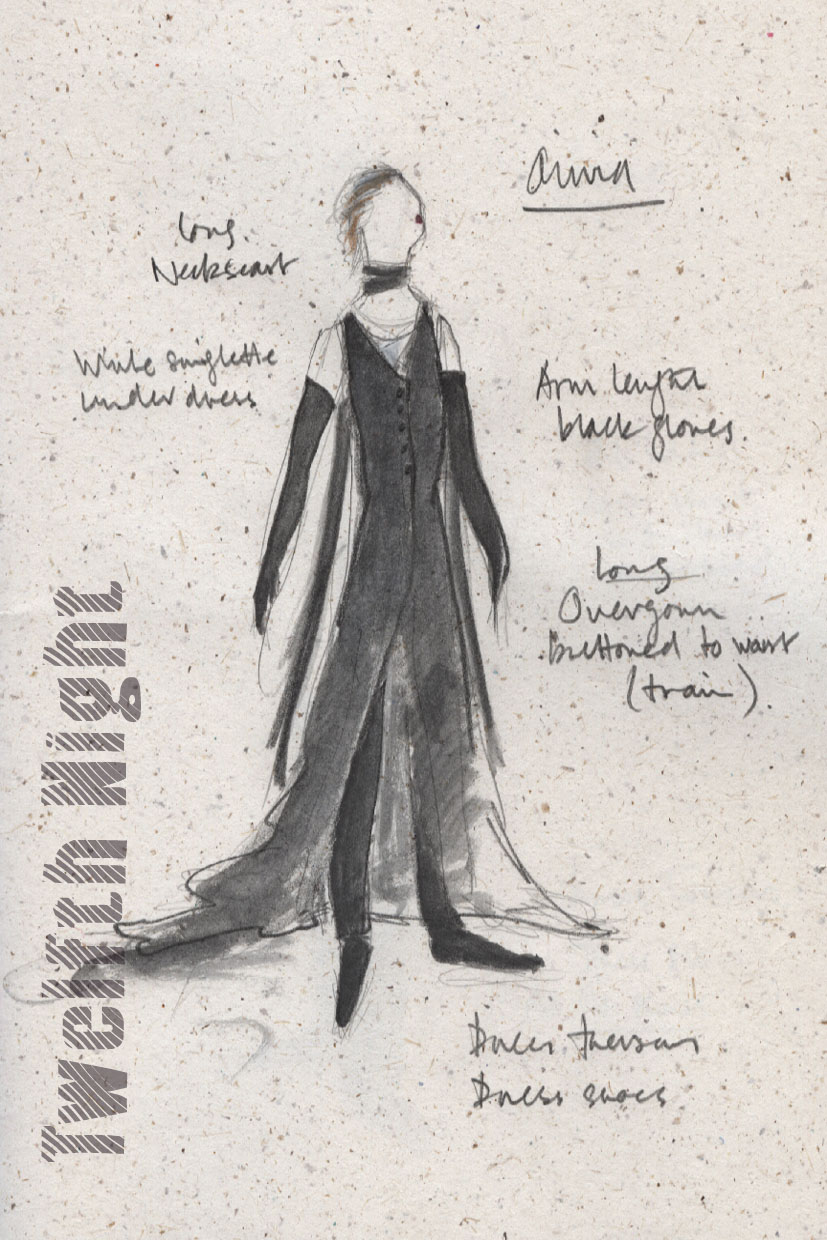 Olivia
Long
Neckscarf
White singlette
under dress
Arm length
black gloves.
Long
Overgown
Buttoned to waist
(train).
Twelfth Night
Dress trousers
Dress shoes